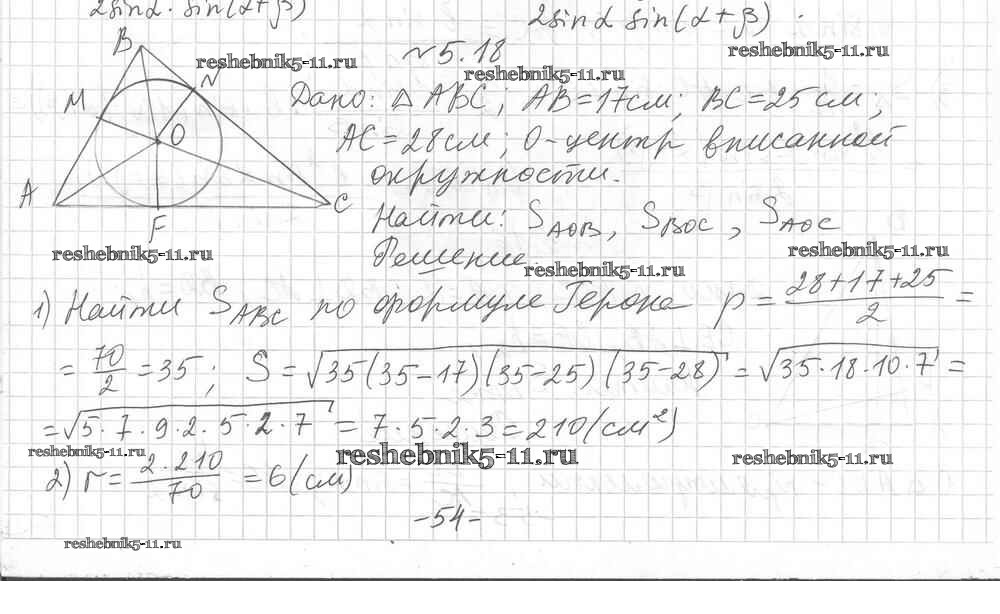 2sinα · sin(α+β)
2sinα sin(α+β) .
B
reshebnik5-11.ru
№5.18
reshebnik5-11.ru
reshebnik5-11.ru
M
N
O
A
C
F
Дано: △ABC; AB=17см; BC=25см;
AC=28см; O-центр вписанной
окружности.
Найти: S_AOB, S_BOC, S_AOC
reshebnik5-11.ru
reshebnik5-11.ru
Решение.
reshebnik5-11.ru
1) Найти S_ABC по формуле Герона p = (28+17+25)/2 =
= 70/2 = 35; S = √(35(35-17)(35-25)(35-28)) = √(35·18·10·7) =
= √(5·7·9·2·5·2·7) = 7·5·2·3 = 210 (см²)
reshebnik5-11.ru
reshebnik5-11.ru
reshebnik5-11.ru
2) r = (2·210)/70 = 6 (см)
-54-
reshebnik5-11.ru